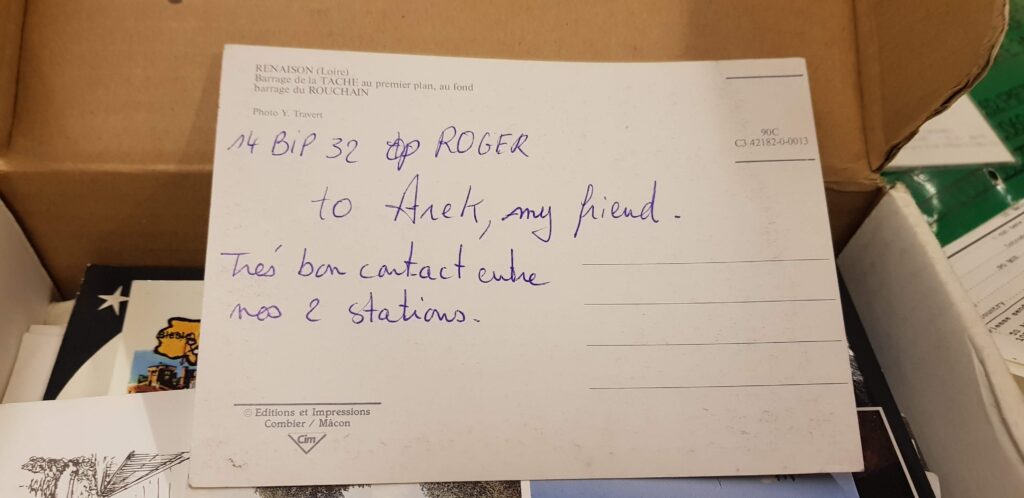 RENAISON (Loire)
Barrage de la TACHE au premier plan, au fond
barrage du ROUCHAIN
Photo Y. Travert
90C
C3 42182-0-0013
14 BiP 32 op ROGER
to Arek, my friend.
Trés bon contact entre
nos 2 stations.
© Editions et Impressions
Combier / Mâcon
Cim